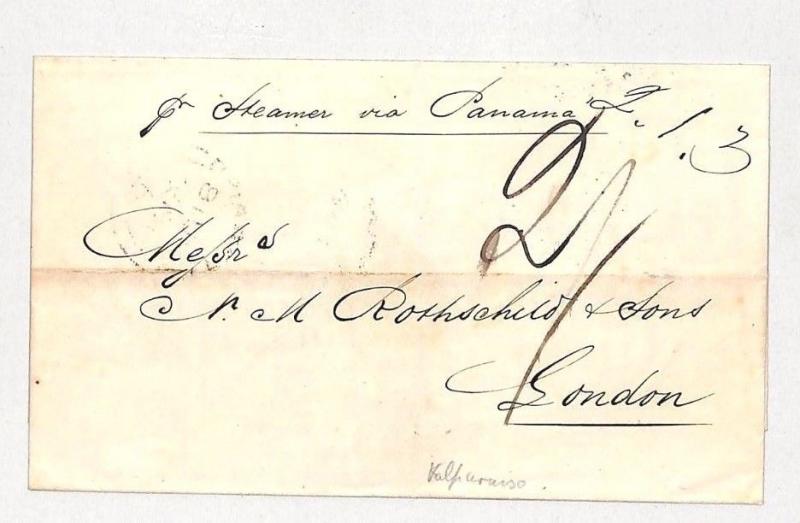 pr Steamer via Panama
2/
Messrs
N. M Rothschild & Sons
London
Valparaiso.